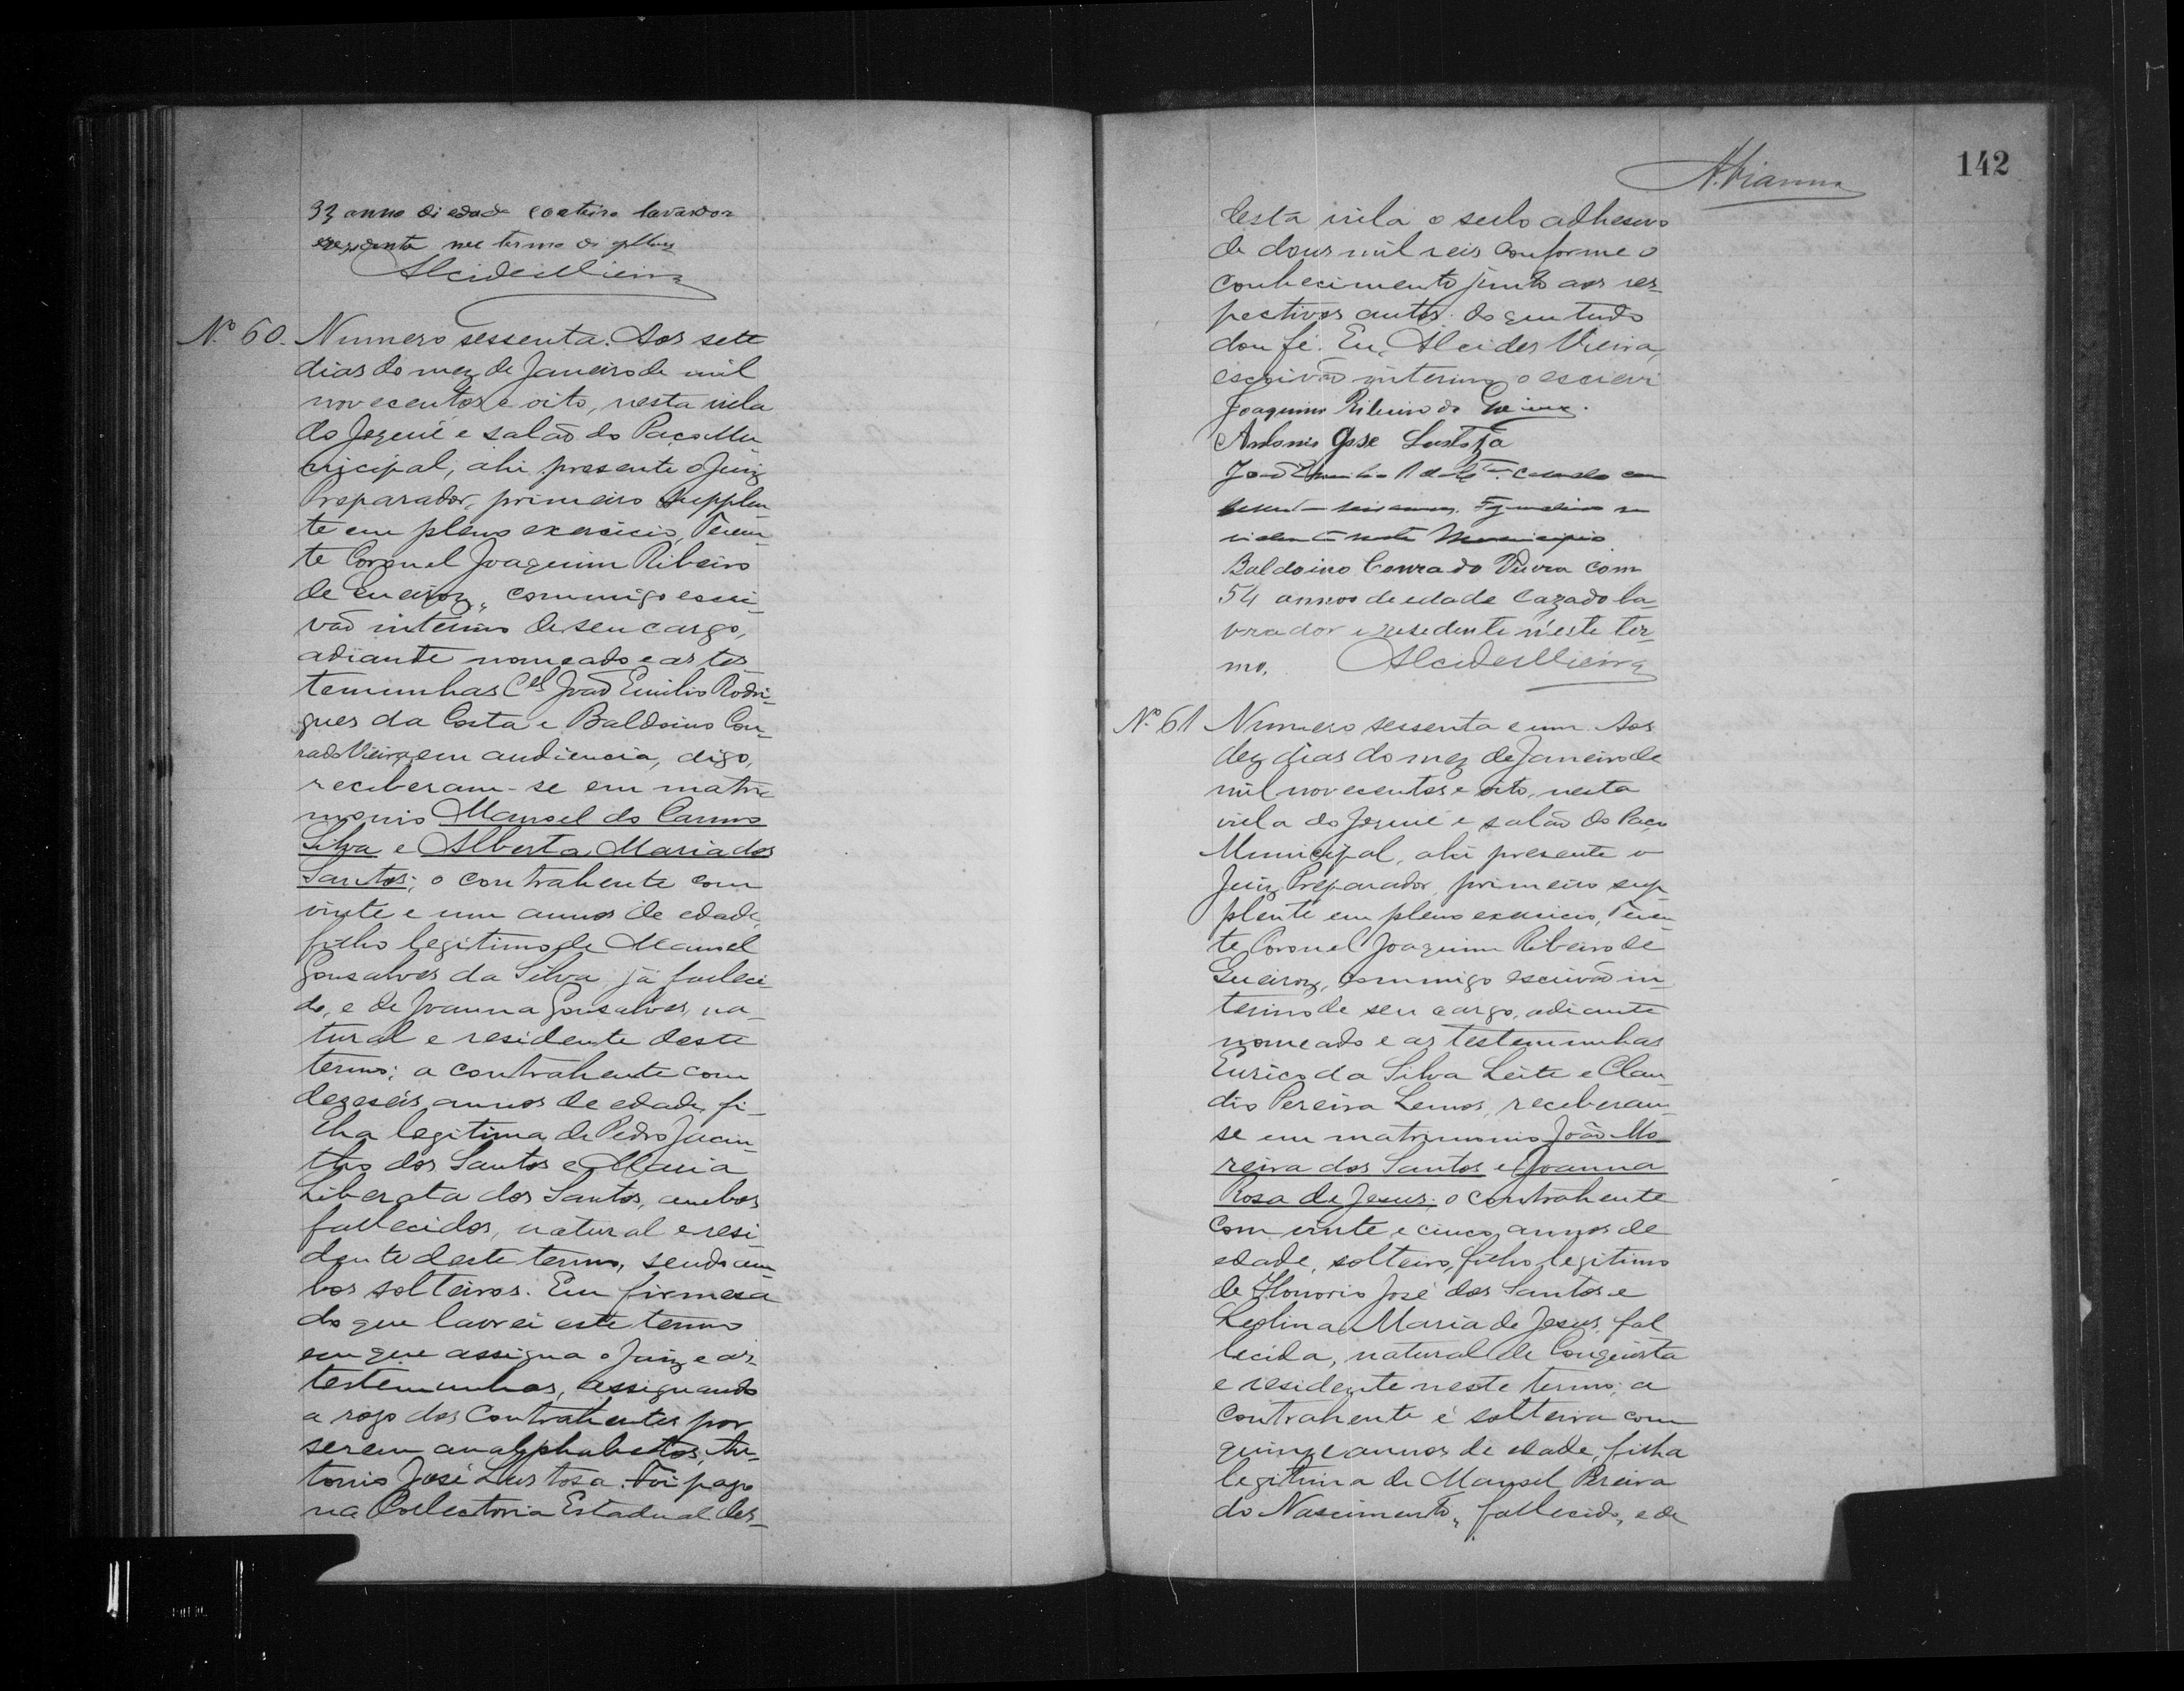 33 anno di edade lavrador
no termo di
Alcides Vieira
Nº 60. Numero sessenta. Aos sete
dias do mez de Janeiro de mil
novecentos e oito, nesta villa
do Jequié e salão do Paço Mu
nicipal, ahi presente o Juiz
Preparador, primeiro supplen
te em pleno exercicio, Tenen
te Coronel Joaquim Ribeiro
de Queiroz, commigo escri
vão interino de seu cargo,
adiante nomeado e as tes
temunhas Cel João Emilio Rodri-
gues da Costa e Baldoino Con-
rado Vieira em audiencia, digo,
receberam-se em matri
monio Manoel do Carmo
Silva e Alberta Maria dos
Santos; o contrahente com
vinte e um annos de edade,
filho legitimo de Manoel
Gonsalves da Silva já falleci-
do, e de Joanna Gonsalves, na-
tural e residente deste
termo; a contrahente com
dezeseis annos de edade, fi-
lha legitima de Pedro Jacin-
tho dos Santos e Maria
Liberata dos Santos, ambos
fallecidos, natural e resi-
dente deste termo, sendo am-
bos solteiros. Em firmesa
do que lavrei este termo
em que assigna o Juiz e as
testemunhas, assignando
a rogo dos Contrahentes por
serem analphabetos, An-
tonio José Lustosa. Foi pago
na Collectoria Estadual des-
142
A. Vianna
desta villa o sello adhesivo
de dous mil reis conforme o
conhecimento junto aos res-
pectivos autos. do que tudo
dou fé. Eu, Alcides Vieira,
escrivão interino o escrevi
Joaquim Ribeiro de Queiroz.
Antonio Jose Lustoza
João Emilio R da Cta. Casado com
seis annos. Fazendeiro re
sidente neste Municipio
Baldoino Conrado Vieira com
54 annos de edade Cazado la-
vrador e residente n'este ter-
mo. Alcides Vieira
Nº 61 Numero sessenta e um. Aos
dez dias do mez de Janeiro de
mil novecentos e oito, nesta
villa do Jequié e salão do Paço
Municipal, ahi presente o
Juiz Preparador, primeiro sup-
plente em pleno exercicio, Tenen
te Coronel Joaquim Ribeiro de
Queiroz, commigo escrivão in-
terino de seu cargo, adiante
nomeado e as testemunhas
Eurico da Silva Leite e Clau-
dio Pereira Lemos, receberam-
se em matrimonio João Mo-
reira dos Santos e Joanna
Rosa de Jesus; o contrahente
com vinte e cinco annos de
edade, solteiro, filho legitimo
de Honorio José dos Santos e
Leolina Maria de Jesus, fal
lecida, natural de Conquista
e residente neste termo; a
contrahente é solteira com
quinze annos de edade, filha
legitima de Manoel Pereira
do Nascimento, fallecido, e de